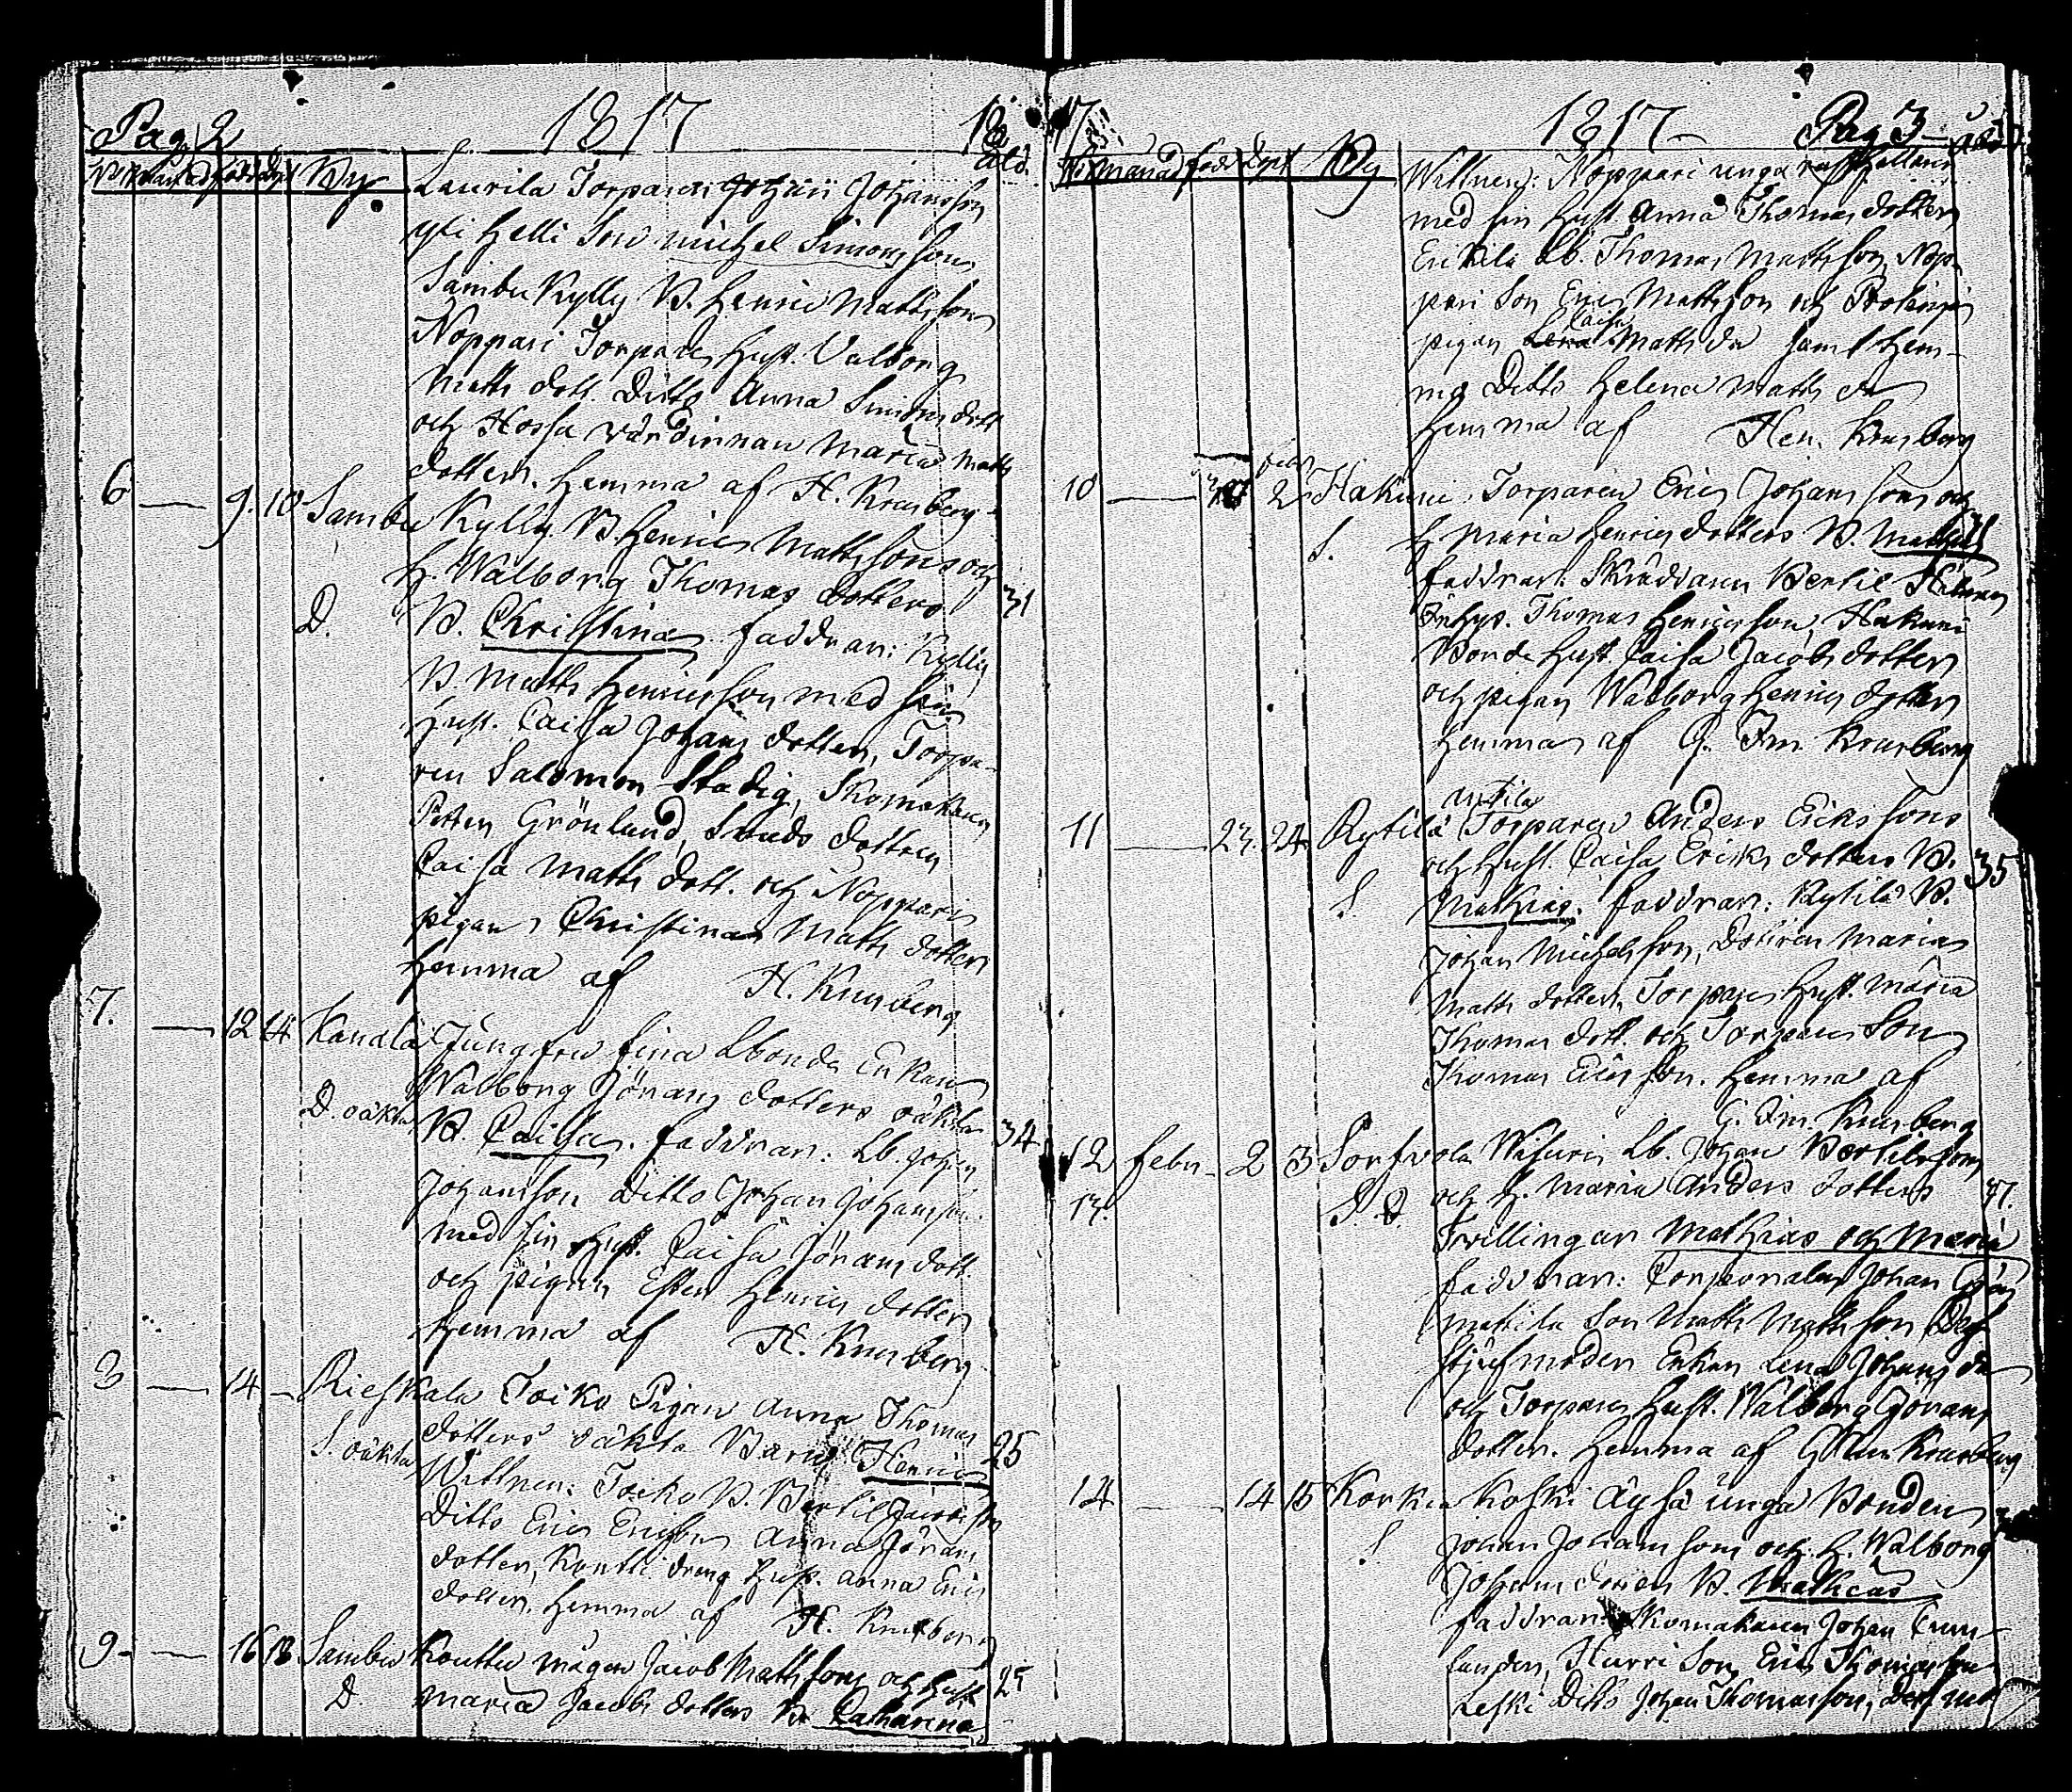 Pag. 2 1817 18
No Månad född Döpt By åld.
Laurila Torparen Johan Johansson
yli Helli Son Michel Simonsson
Sambu Kylly B. Henric Mattsson
Noppari Torpares Hust. Valborg
Matts dott. Ditto Anna Simons dott
och Hossa värdinnan Maria Matts
dotter. Hemma af H. Krusberg
6 — 9. 10 Sambu Kylly B. Henrics Mattssons och
H. Walborg Thomas dotters 31
D. B. Christina faddrar: Kylly
B. Matts Henricsson med sin
Hust. Caisa Johans dotter, Torpa-
ren Salomon Stadig, Skomakaren
Petter Grönlund, dotteren
Caisa Matts dott. och Noppari
pigan Christina Matts dotter
Hemma af H. Krusberg
7. — 12 14 Kandla Jungfru Enkan
Walborg Jörans dotters oäkta
D. oäkta B. Caisa. faddrar: Lb. Johan 34
Johansson Ditto Johan Johansson
med sin Hust. Caisa Jörans dott.
och pigan Ester Henrics dotter
Hemma af H. Krusberg
8 — 14 — Rieskala Toiko Pigan Anna Thomas
dotters oäkta Barn Henric 25
S. oäkta Wittnen: Toiko B. Bertil Jacobsson
Ditto Eric Ericsson Anna Jörans
dotter, Kontti dreng Hust. Anna Erics
dotter, Hemma af H. Krusberg
9 — 16 18 Sambu Kouttu mågen Jacob Mattssons och Hust 25
D Maria Jacobs dotters B. Catharina
17 1817 — Pag 3 —
No Månad född Döpt By åld
Wittnen: Noppari unga
med sin Hust Anna Thomas dotter
Erikilä Lb. Thomas Mattsson, Nop-
pari Son Eric Mattsson och
pigan Caisa Matts dr samt Hem-
ma Ditto Helena Matts dr
Hemma af Hen. Krusberg
10 — 30 febr 2 Hakuni Torparen Erics Johanssons och
S. H Maria Henrics dotters B. Mathias 31
faddrar: Skräddaren Bertil
Inhys. Thomas Henricsson, Hakuni
Bonde Hust. Caisa Jacobs dotter
och pigan Walborg Henrics dotter
Hemma af G. Im. Krusberg
Antila
11 — 23. 24 Rytilä Torparen Anders Ericssons
och Hust. Caisa Erics dotters B. 35
S. Mathias. faddrar: Rytilä B.
Johan Michelsson, Dottren Maria
Matts dotter, Torpares Hust. Maria
Thomas dott. och Torpares Son
Thomas Ericsson. Hemma af
G. Im. Krusberg
12 febr — 2 3 Sorfvola Wihuri Lb. Johan Bertilssons
13. S. D. och H. Maria Anders dotters 37.
Tvillingar Mathias och Maria
faddrar: Corporalen Johan
Mattila Son Matts Mattsson Dess
stjufmoder Enkan Lena Johans dr
och Torpares Hust. Walborg Görans
dotter. Hemma af G Im Krusberg
14 — 14 15 Korkia Koski Äysä unga Bonden
S Johan Johanssons och H. Walborg
Johans dotters B. Mathias
faddrar: Skomakaren Johan
Hurri Son Eric Thomasson
Leski Ditto Johan Thomasson, Dess